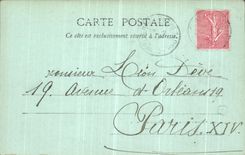 CARTE POSTALE
Ce côté est exclusivement réservé à l'adresse.
Monsieur Léon Dève
19. Avenue d'Orléans 19
Paris. XIV